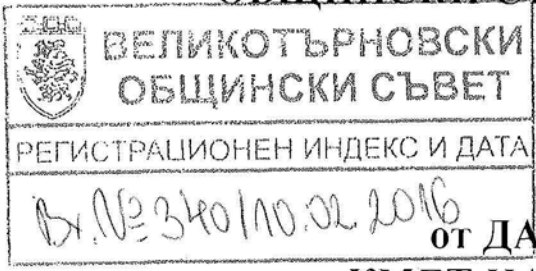 ВЕЛИКОТЪРНОВСКИ
ОБЩИНСКИ СЪВЕТ
РЕГИСТРАЦИОНЕН ИНДЕКС И ДАТА
Вх.№ 340/10.02.2016
от ДА